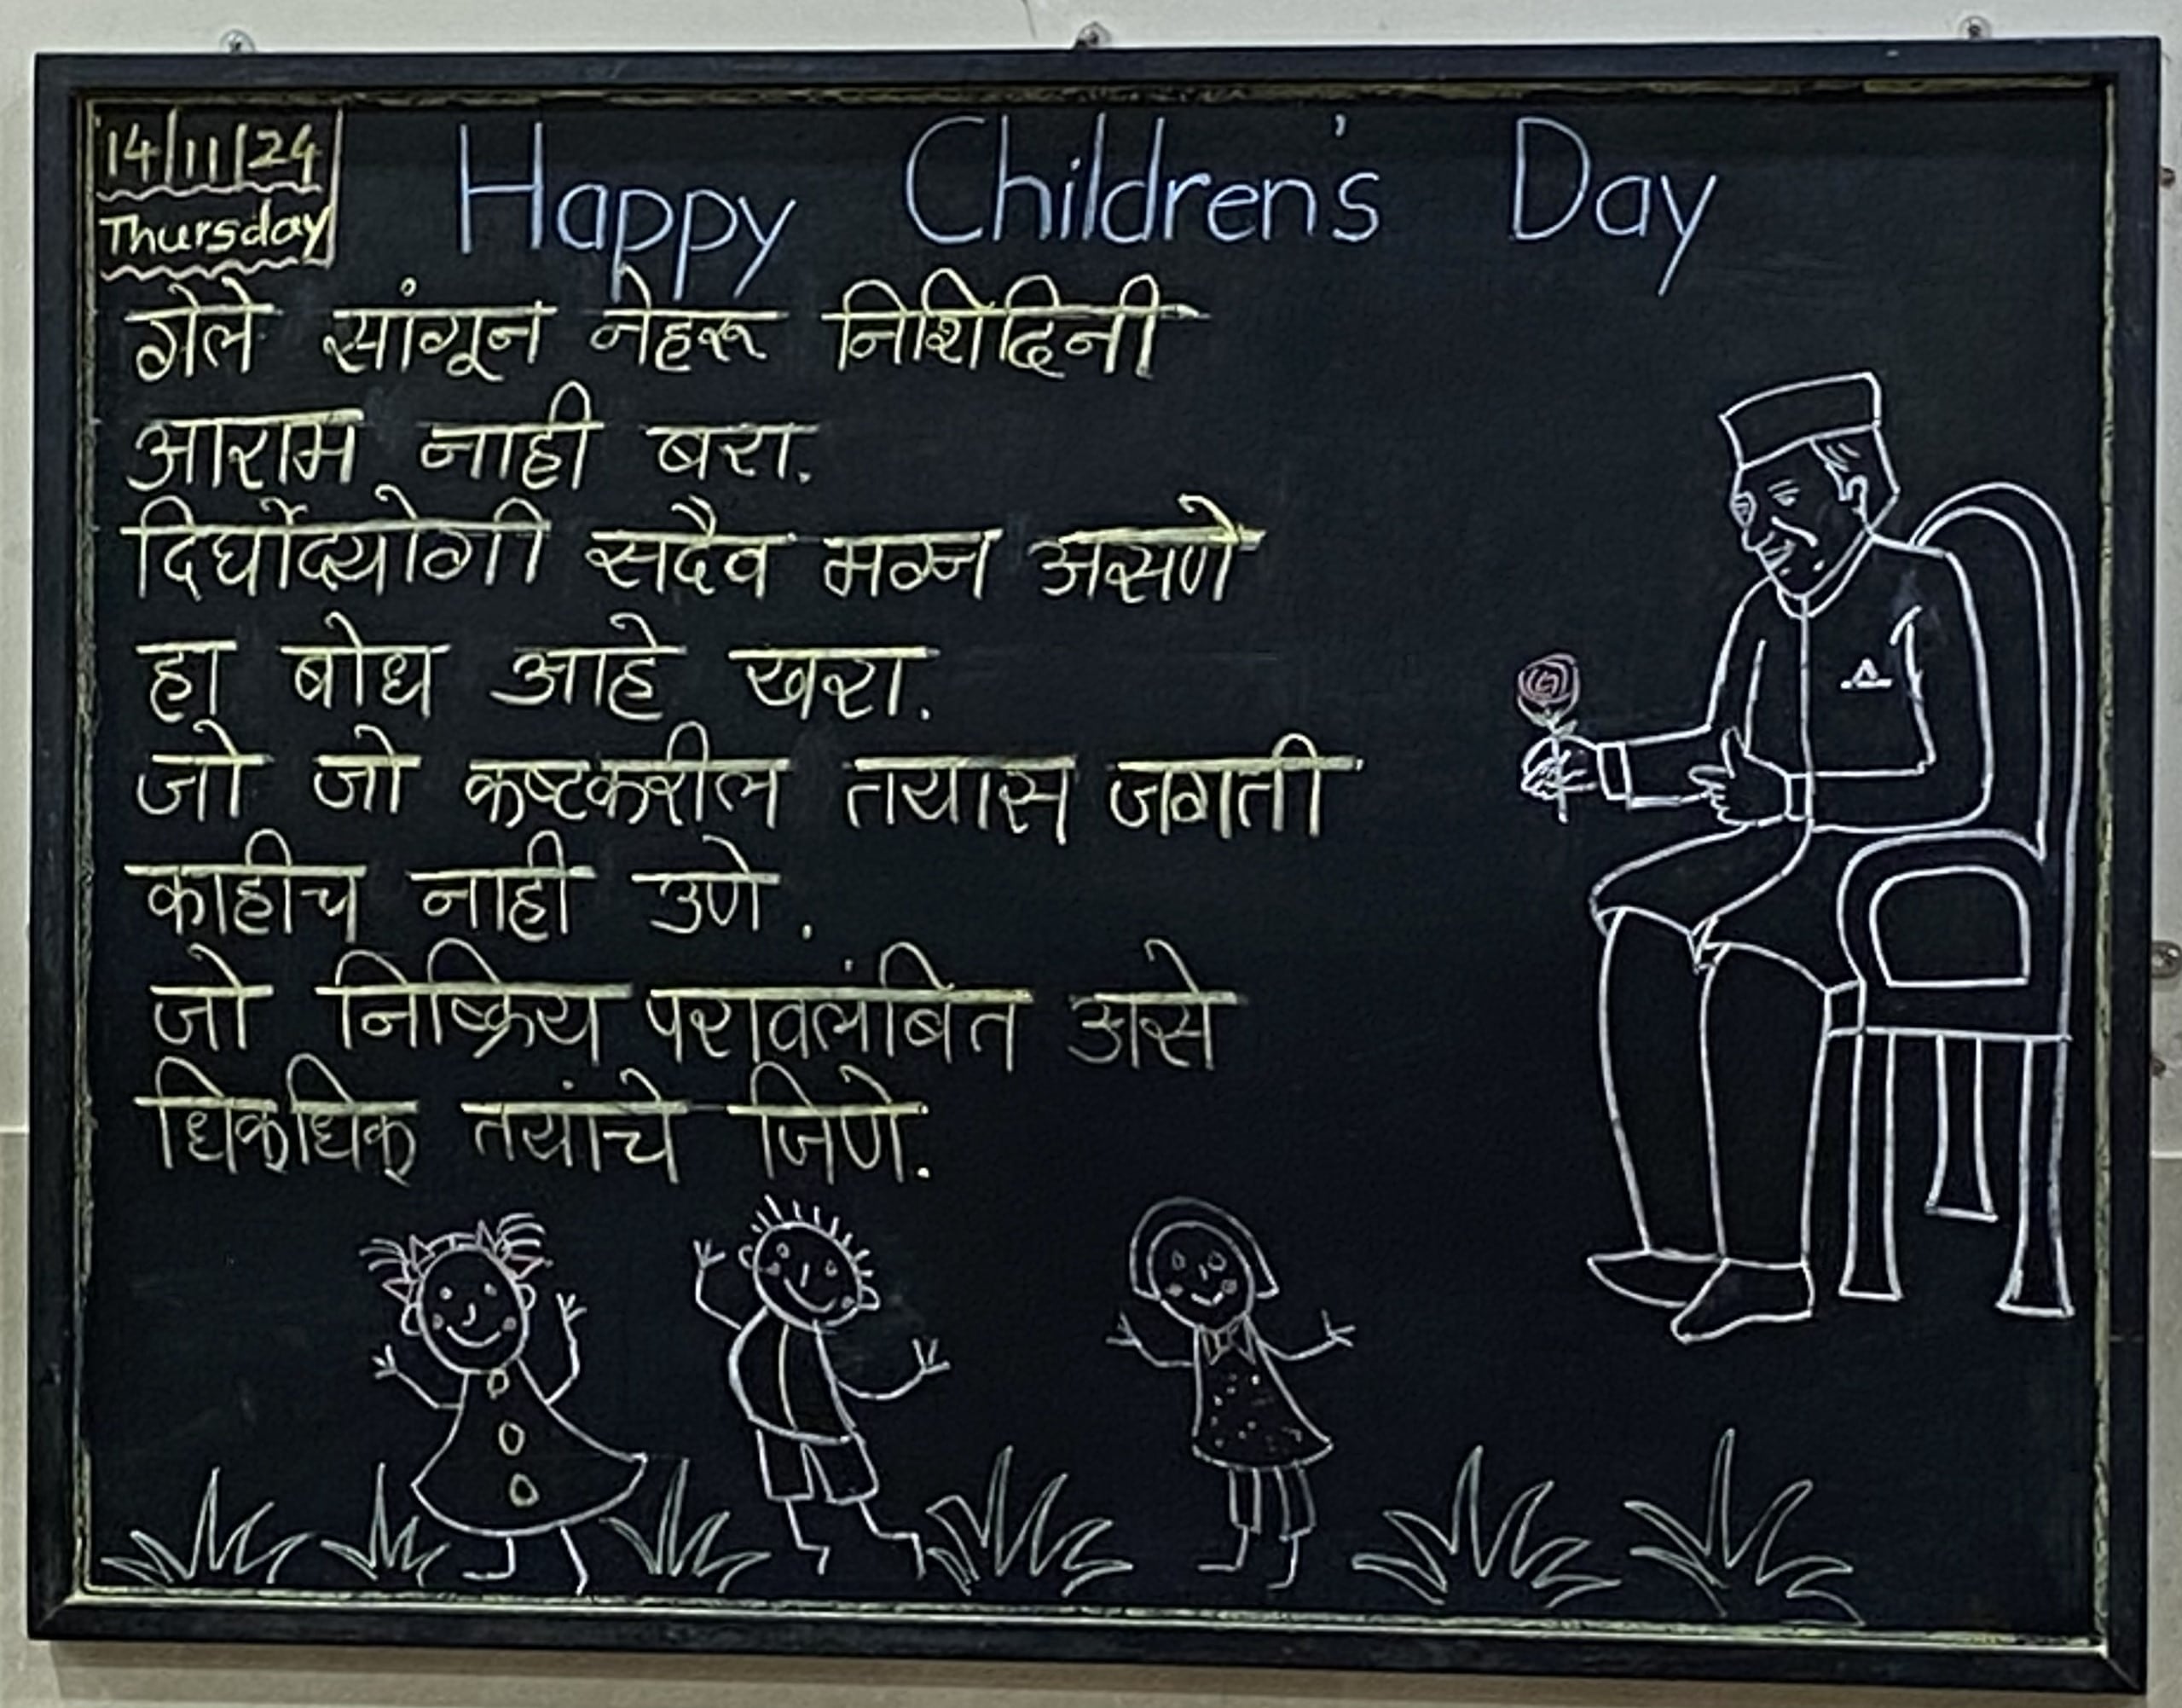 14/11/24
Thursday
Happy Children's Day
गेले सांगून नेहरू निशिदिनी
आराम नाही बरा.
दिर्घोद्योगी सदैव मग्न असणे
हा बोध आहे खरा.
जो जो कष्टकरील तयास जगती
काहीच नाही उणे.
जो निष्क्रिय परावलंबित असे
धिक्धिक् तयांचे जिणे.